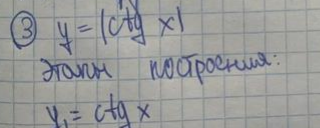 ③ y = |ctg x|
Этапы построения:
y₁ = ctg x